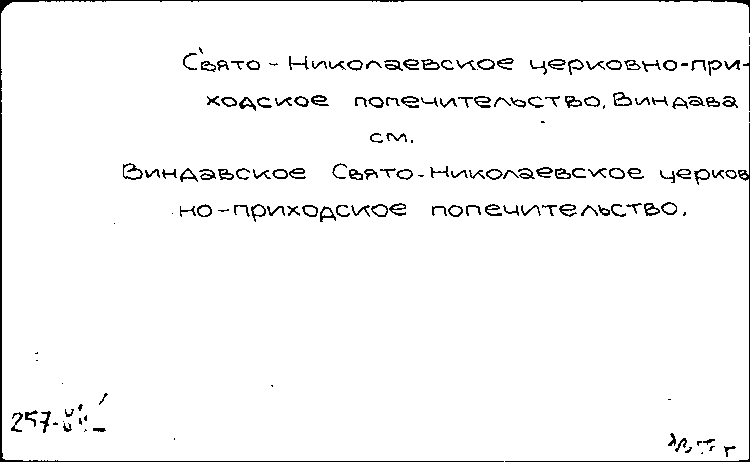 Свято-Николаевское церковно-при-
ходское попечительство, Виндава
см.
Виндавское Свято-Николаевское церков
но-приходское попечительство.